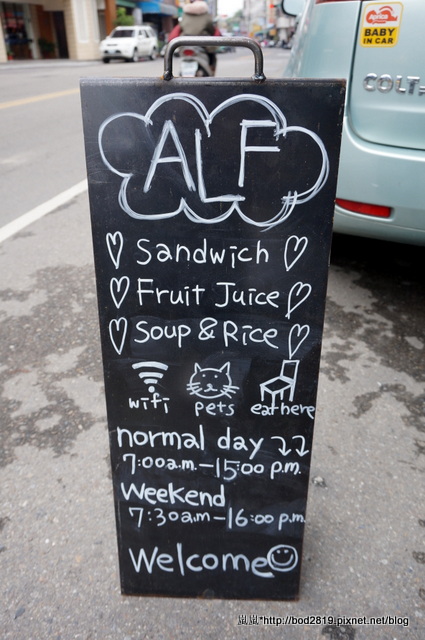 Aprica
BABY
IN CAR
COLT
ALF
Sandwich
Fruit Juice
Soup & Rice
wifi pets eat here
normal day
7:00a.m.—15:00 p.m.
Weekend
7:30a.m—16:00 p.m.
Welcome
嵐嵐*http://bod2819.pixnet.net/blog